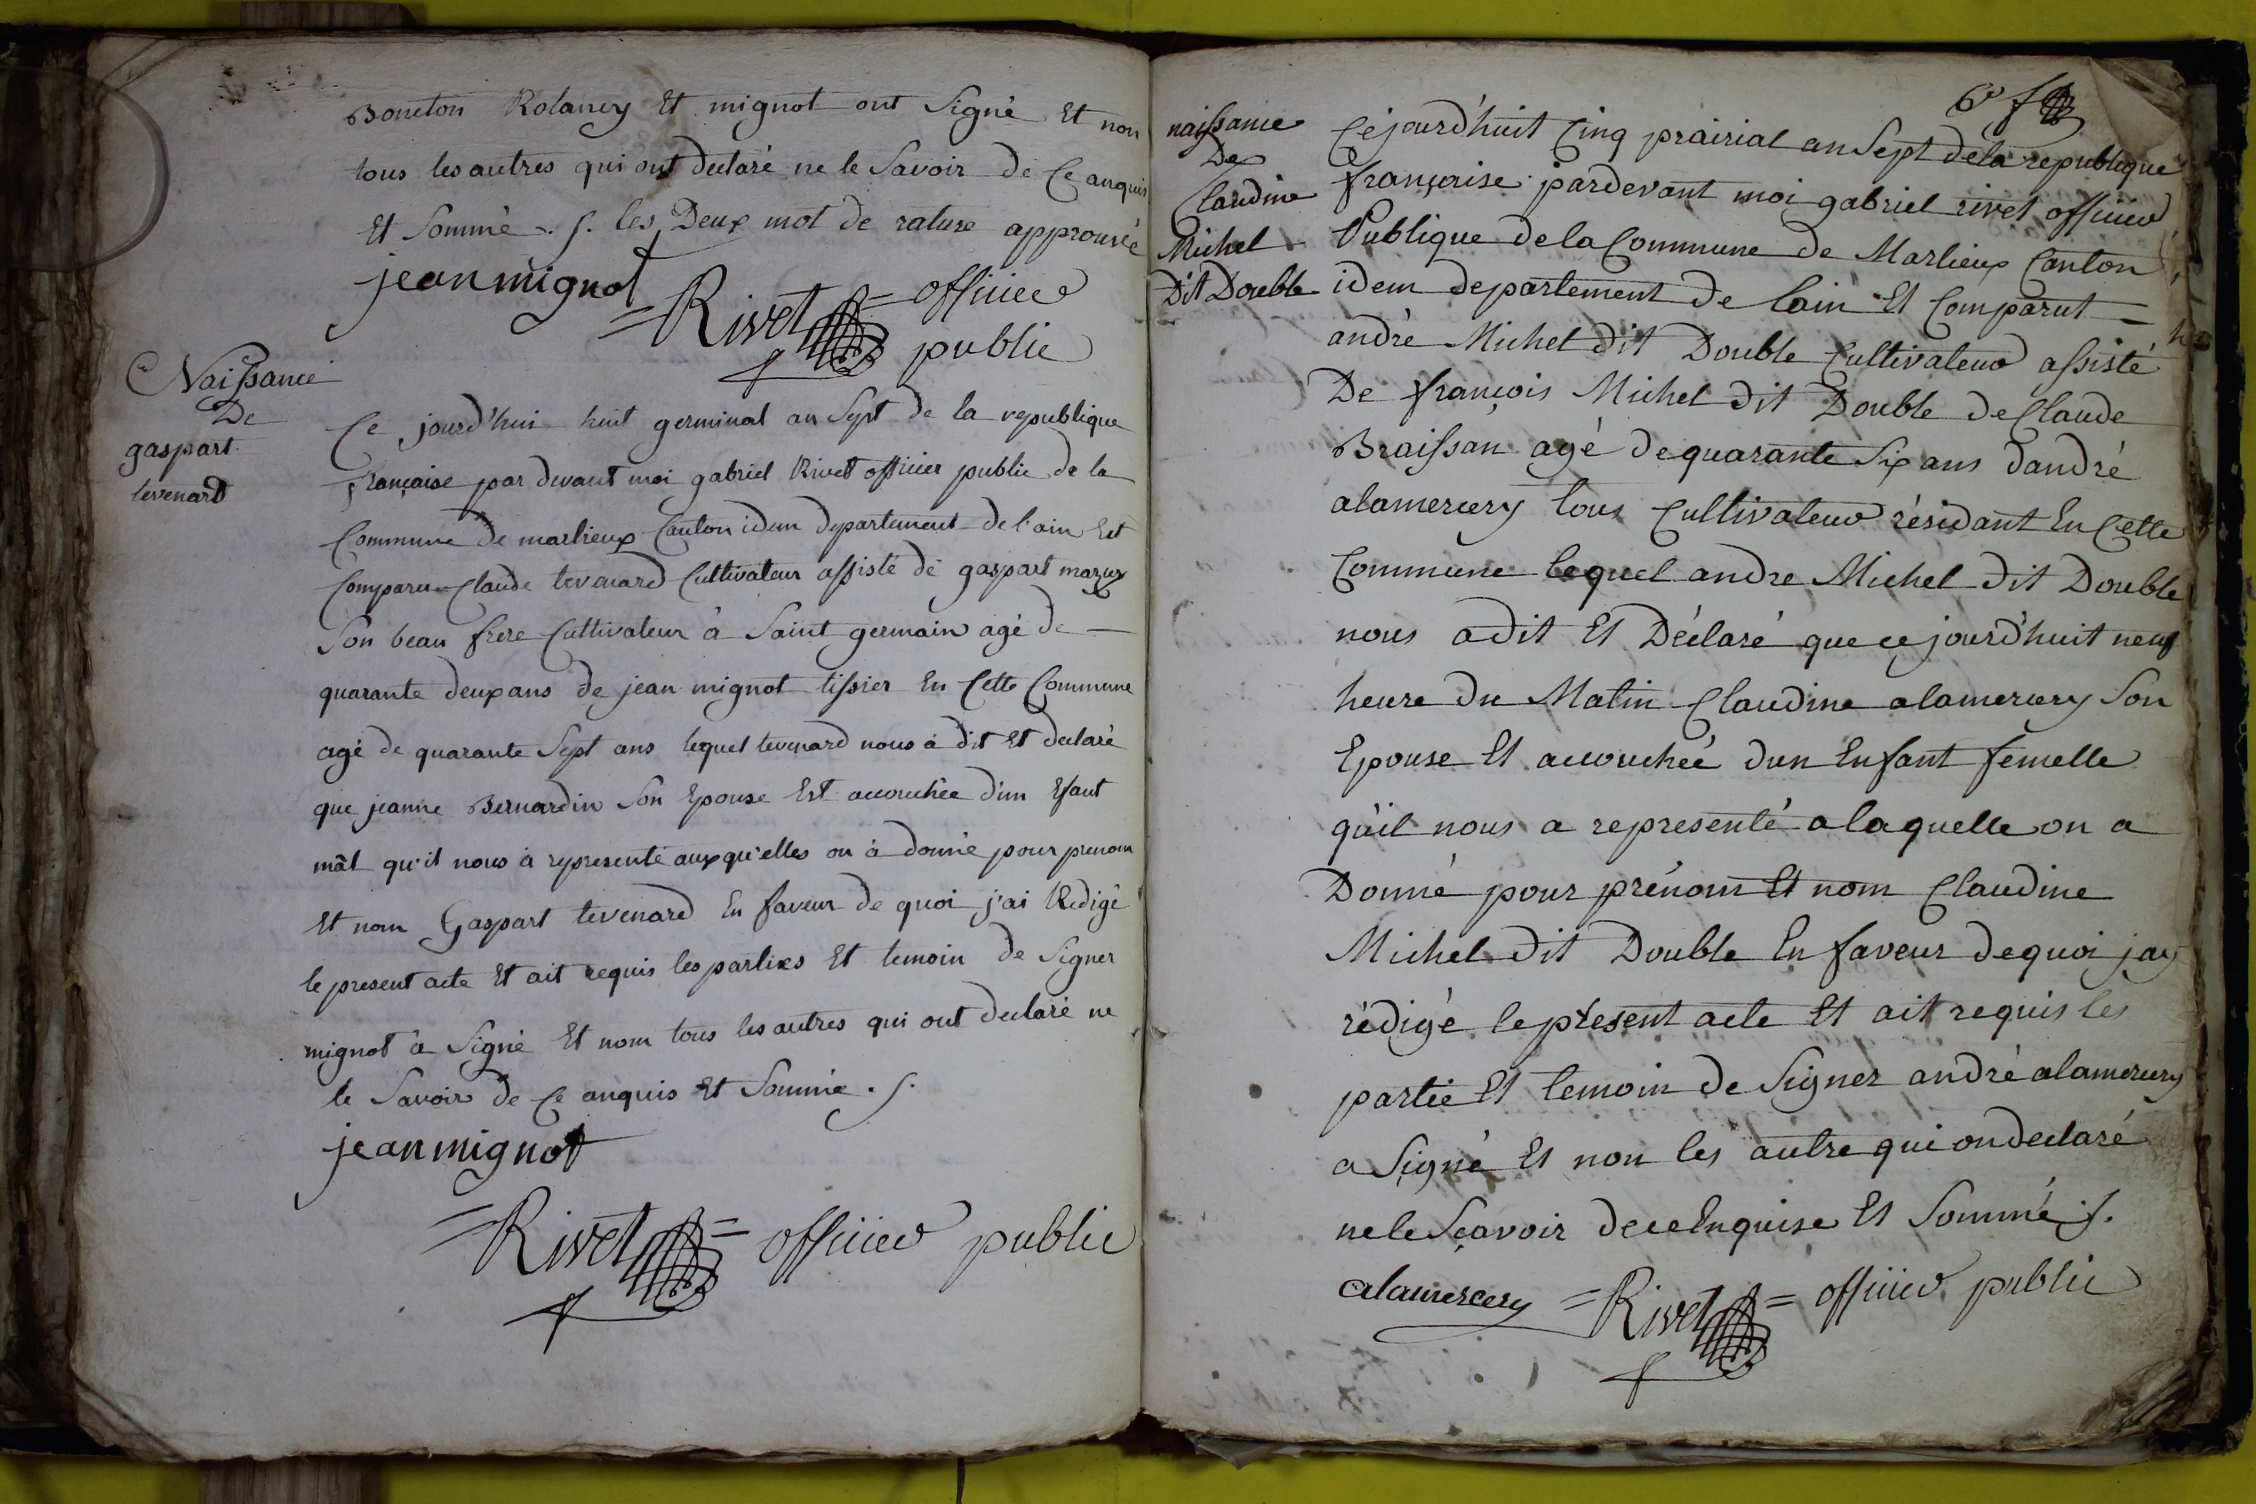 Boneton Rolancy Et mignot ont Signé Et non
tous les autres qui ont declaré ne le Savoir de Ce anquis
Et Sommé . s. les Deux mot de rature approuvée
jean mignot
= Rivet = officier
public
Naissance
De
gaspart
tevenard
Ce jourd'hui huit germinal an Sept de la republique
française par devant moi gabriel Rivet officier public de la
Commune de marlieux Canton idem departement de l'ain Est
Comparu Claude tevenard Cultivateur assisté de gaspart mazuy
Son beau frere Cultivateur à Saint germain agé de —
quarante deux ans de jean mignot tissier En Cette Commune
agé de quarante Sept ans lequel tevenard nous à dit Et declaré
que jeanne Bernardin Son Epouse Est accouchée d'un Efant
mâl qu'il nous à representé auxqu'elles on à donné pour prenom
Et nom Gaspart tevenard En faveur de quoi j'ai Redigé
le present acte Et ait requis les parties Et temoin de Signer
mignot à Signé Et nom tous les autres qui ont declaré ne
le Savoir de Ce anquis Et Sommé . s.
jean mignot
= Rivet = officier public
6e f
naissance
De
Claudine
Michel
Dit Double
Cejourd'huit Cinq prairial an Sept dela republique
française pardevant moi gabriel rivet officier
Publique dela Commune de Marlieux Canton
idem departement de lain Et Comparut —
andré Michel dit Double Cultivateur assisté
De françois Michel dit Double de Claude
Braissan agé dequarante Six ans dandré
alamercery tous Cultivateur résidant En Cette
Commune lequel andre Michel dit Double
nous adit Et Déclaré que ce jourd'huit neuf
heure du Matin Claudine alamercery Son
Epouse Et accouchéé dun Enfant femelle
qúil nous a representé alaquelle on a
Donné pour prénom Et nom Claudine
Michel dit Double En faveur dequoi jay
rédigé le présent acte Et ait requis les
partie Et temoin de Signer andré alamercery
a Signé Et non les autre qui ondeclaré
nele Sçavoir dece Enquise Et Sommé .s.
alamercery = Rivet = officier public